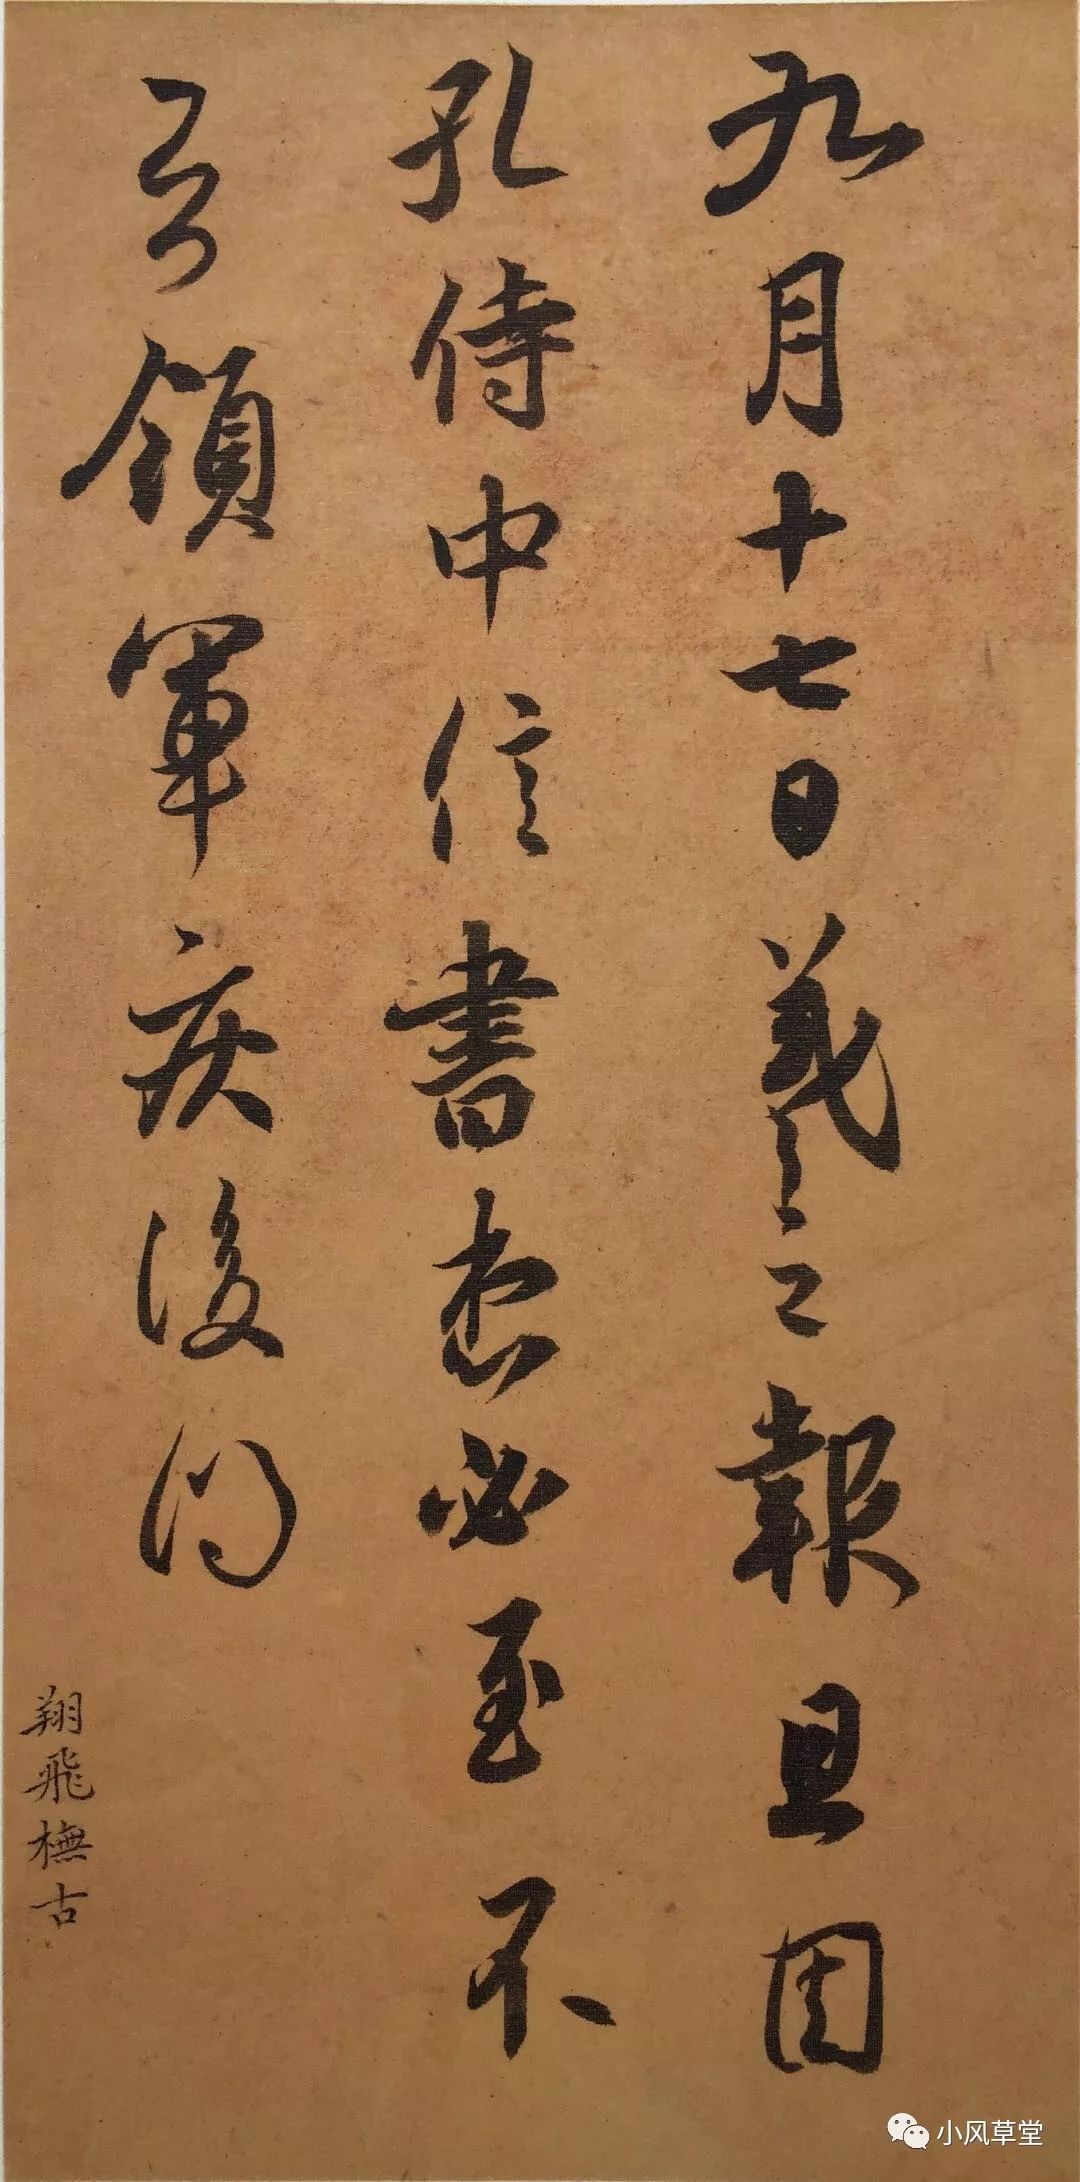 九月十七日羲之報且因
孔侍中信書想必至不
知領軍疾後問
翔飛橅古
小风草堂